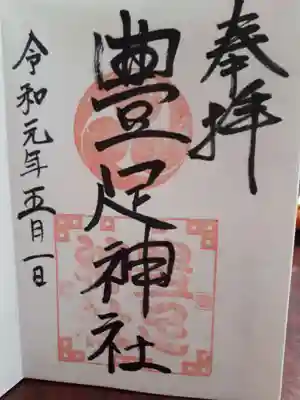 奉拝
豊足神社
令和元年五月一日